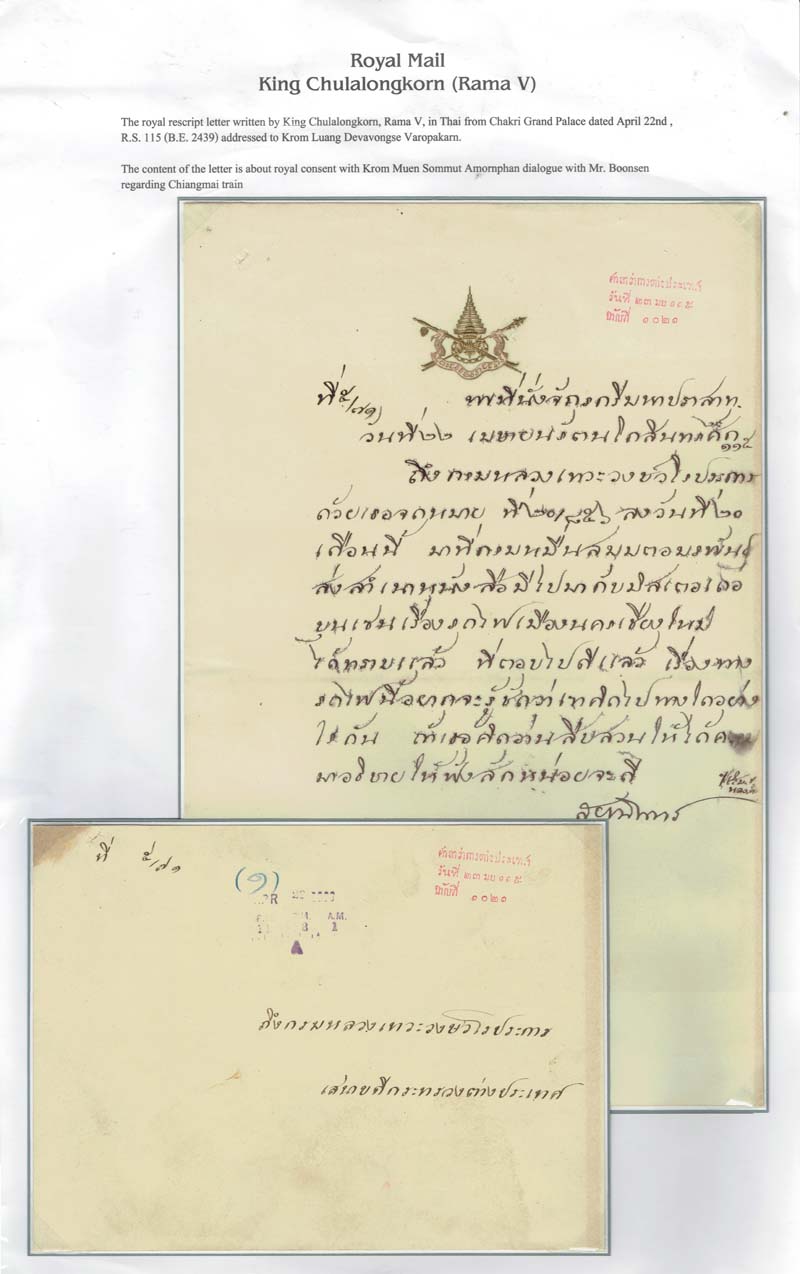 Royal Mail
King Chulalongkorn (Rama V)
The royal rescript letter written by King Chulalongkorn, Rama V, in Thai from Chakri Grand Palace dated April 22nd ,
R.S. 115 (B.E. 2439) addressed to Krom Luang Devavongse Varopakarn.
The content of the letter is about royal consent with Krom Muen Sommut Amornphan dialogue with Mr. Boonsen
regarding Chiangmai train
วันที่ ๒๓
ลำดับที่ ๑๐๒๑
ที่ ๕/๗๑ พระที่นั่งจักรกรีมหาปราสาท
วันที่ ๒๒ เมษายน รัตนโกสินทรศก ๑๑๕
ถึง กรมหลวงเทวะวงษวโรประการ
ด้วยเธอจดหมาย ที่ ลงวันที่ ๒๐
เดือนนี้ มาที่กรมหมื่นสมมตอมรพันธุ์
ส่งสำเนาหนังสือมีไปมากับมิสเตอ
บุนเซนเรื่องรถไฟเมืองนครเชียงใหม่
ได้ทราบแล้ว ที่ตอบไปดีแล้ว เรื่องทาง
รถไฟนี้อยากจะรู้ชัดว่าเขาคิดไปทางใดอย่าง
ไรกัน ถ้าเธอคิดอ่านสืบสวนให้ได้ความ
มาอธิบายให้ฟังสักหน่อยจะดี
สยามินทร์
ที่ ๕/๗๑
(๑)
วันที่ ๒๓
A.M.
ลำดับที่ ๑๐๒๑
ถึงกรมหลวงเทวะวงษวโรประการ
เสนาบดีกระทรวงต่างประเทศ